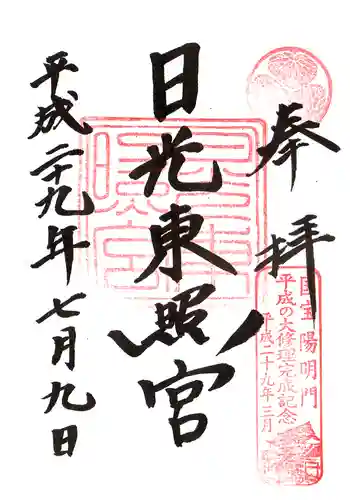 奉拝
国宝陽明門
平成の大修理完成記念
平成二十九年三月
日光東照宮
平成二十九年七月九日